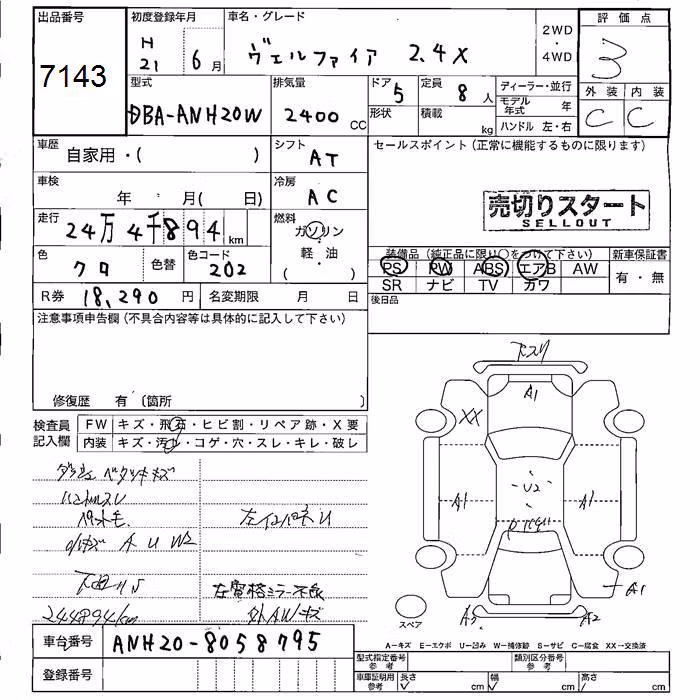 出品番号
7143
初度登録年月
H
21 6月
車名・グレード
ヴェルファイア 2.4X
2WD
・
4WD
評価点
3
外装 内装
C C
型式
DBA-ANH20W
排気量
2400 CC
ドア 5
形状
定員 8人
積載 kg
ディーラー・並行
モデル年式 年
ハンドル 左・右
車歴
自家用・( )
シフト
AT
セールスポイント(正常に機能するものに限ります)
車検
年 月( 日)
冷房
AC
売切りスタート
SELLOUT
走行
24万4千894km
燃料
ガソリン
軽・油
( )
色
クロ
色替
色コード
202
装備品(純正品に限り○をつけて下さい)
PS PW ABS エアB AW
SR ナビ TV カワ
新車保証書
有・無
R券 18,290円
名変期限 月 日
後日品
注意事項申告欄(不具合内容等は具体的に記入して下さい)
修復歴 有(箇所 )
検査員
記入欄
FW キズ・飛石・ヒビ割・リペア跡・X要
内装 キズ・汚レ・コゲ・穴・スレ・キレ・破レ
ダッシュ ベタツキキズ
ハンドルスレ
ペットモ
A U W2
左インパネU
下廻りS
左電格ミラー不良
244894km
外AWキズ
下スリ
A1
XX
U2
A1
A1
ルーフキズ
A1
A3
A2
スペア
A-キズ E-エクボ U-凹み W-補修跡 S-サビ C-腐食 XX→交換済
車台番号
ANH20-8058795
登録番号
型式指定番号
参考
類別区分番号
参考
車庫証明用
参考
長さ cm
幅 cm
高さ cm